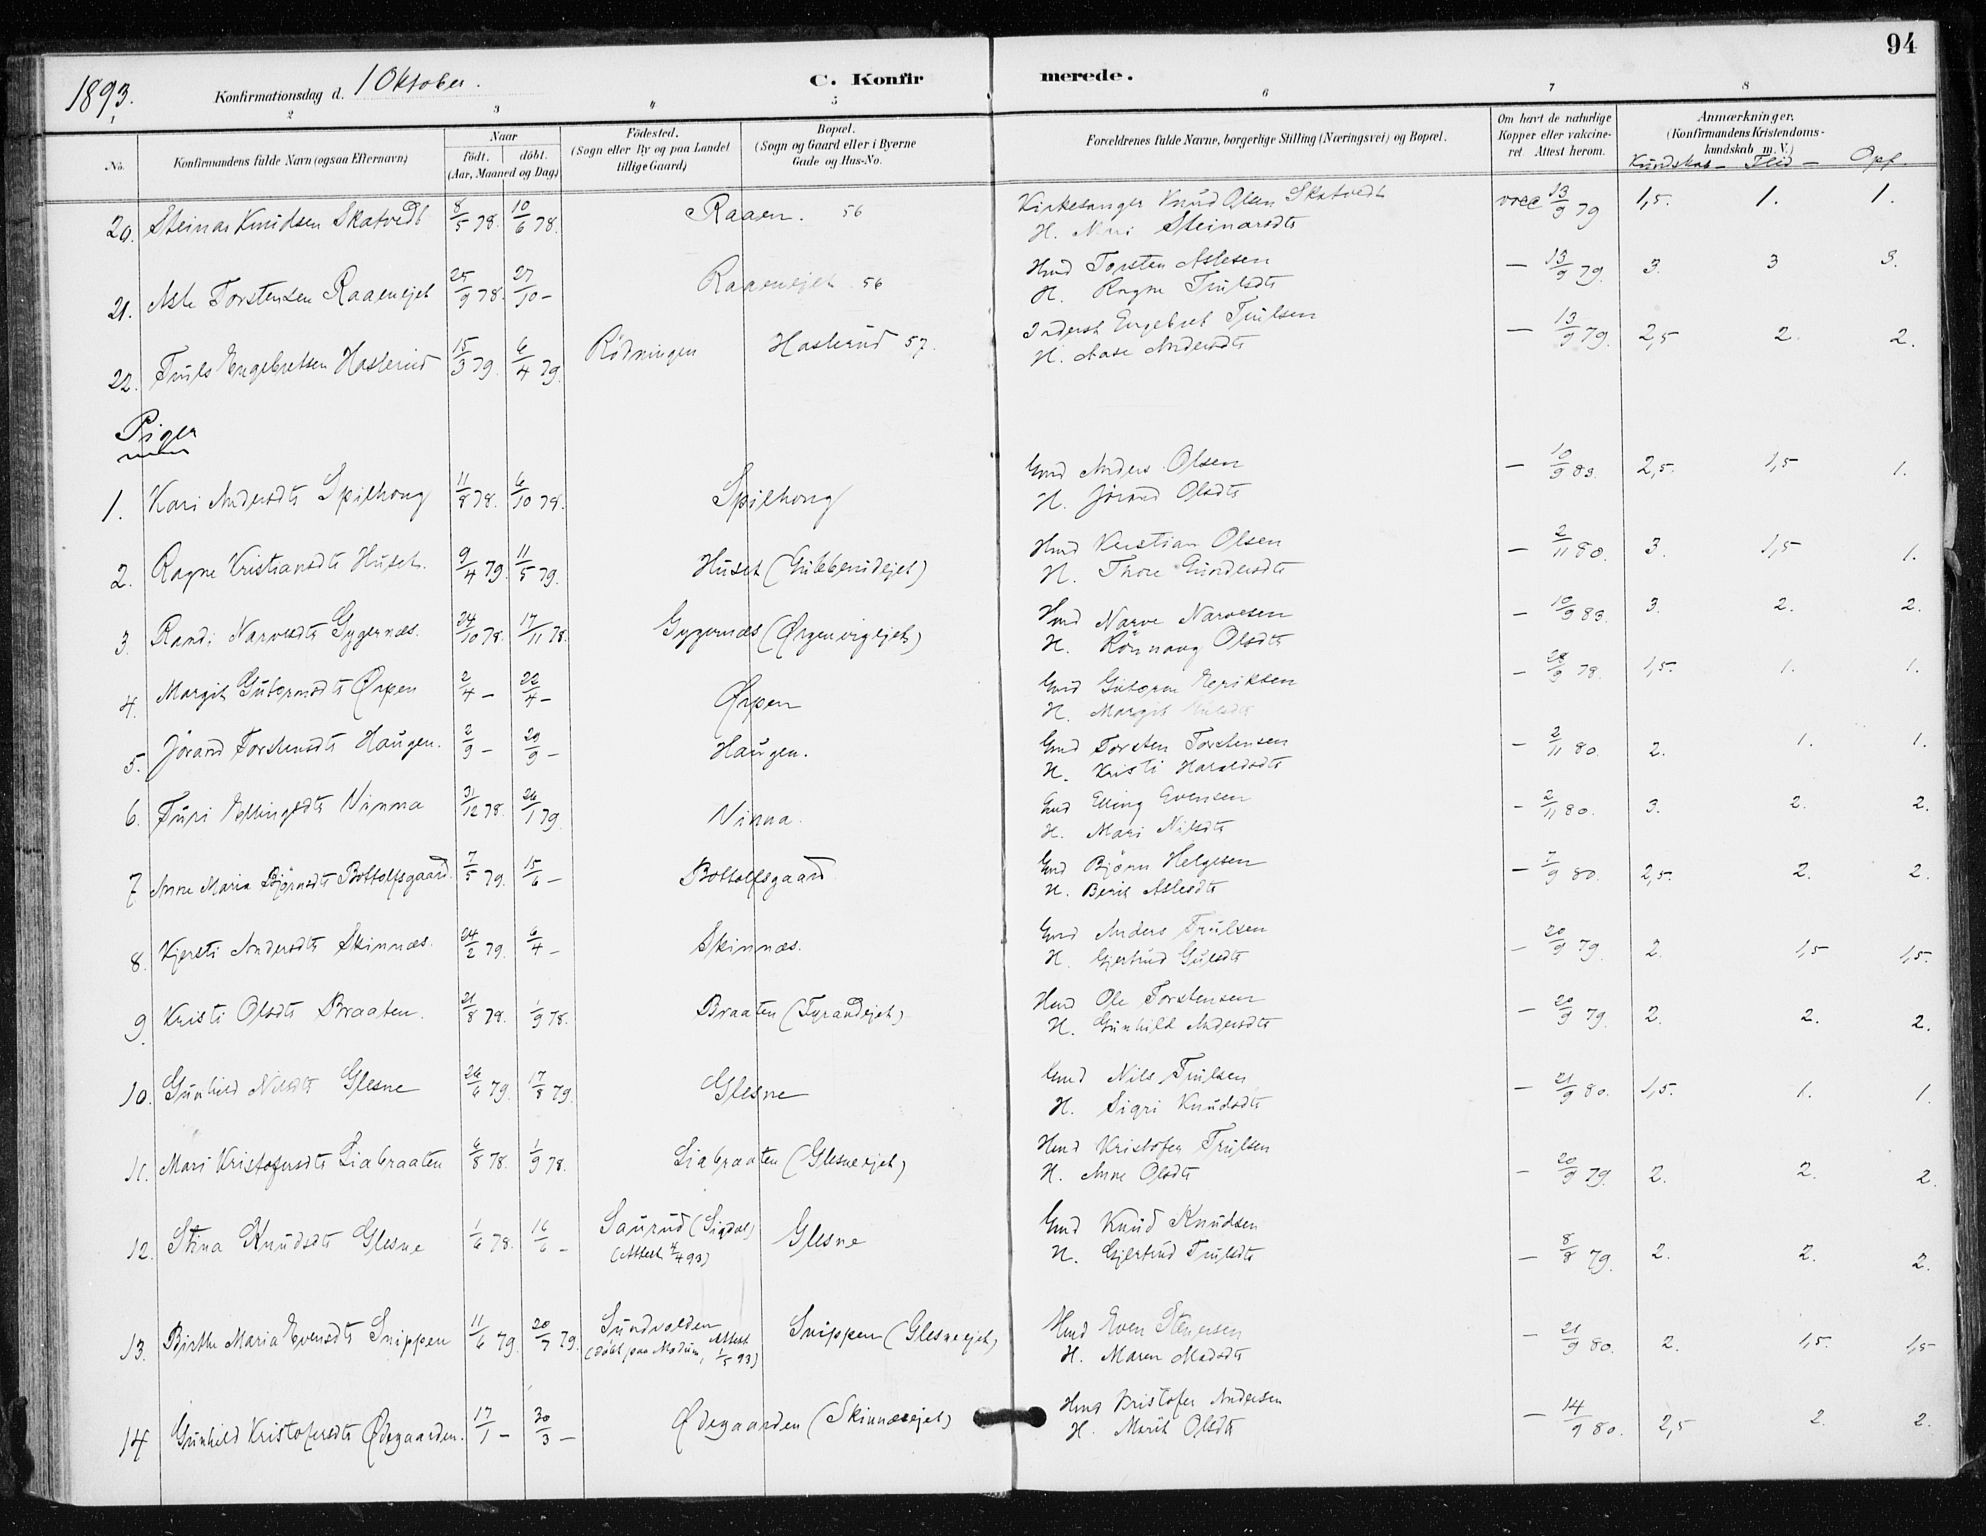 94
1893. Konfirmationsdag d. 1 Oktober. C. Konfir merede.
1 2 3 4 5 6 7 8
No. Konfirmandens fulde Navn (ogsaa Efternavn) Naar født. døbt. (Aar, Maaned og Dag) Fødested. (Sogn eller By og paa Landet tillige Gaard) Bopæl. (Sogn og Gaard eller i Byerne Gade og Hus-No. Forældrenes fulde Navne, borgerlige Stilling (Næringsvei) og Bopæl. Om havt de naturlige Kopper eller vakcineret. Attest herom. Anmærkninger. (Konfirmandens Kristendomskundskab m. V.) Kundskab – Flid – Opf.
20. Steinar Knudsen Skatvedt 8/5 78. 10/6 78. Raaen. 56 Kirkesanger Knud Olsen Skatvedt vacc 13/9 79 1,5. 1. 1.
H. Mari Steinarsdtr
21. Asle Torstensen Raaenejet 25/9 78. 27/10 – Raaenejet 56 Hmd Torsten Aslesen – 13/9 79. 3. 3 3.
H. Ragne Trulsdtr
22. Truls Engebretsen Hasterud 15/3 79. 6/4 79. Rødningen Hasterud 57. Inderst Engebret Trulsen – 13/9 79. 2,5 2. 2.
H. Aase Andersdtr
Piger
1. Kari Andersdtr Spilhaug 11/8 78. 6/10 78. Spilhaug Gmd Anders Olsen – 10/9 83. 2,5. 1,5 1.
H. Jørand Olsdtr
2. Ragne Kristiansdtr Huset. 9/4 79. 11/5 79. Huset (Gubberudejet) Hmd Kristian Olsen – 2/11 80. 3. 1,5 1.
H. Thore Gundersdtr
3. Randi Narvesdtr Gygernæs. 24/10 78. 17/11 78. Gygernæs (Ørgenvigejet) Hmd Narve Narvesen – 10/9 83. 3. 2. 2.
H. Rønnaug Olsdtr
4. Margit Guttormsdtr Ørpen 2/4 – 22/4 – Ørpen Gmd Guttorm Eriksen – 28/9 78. 1,5. 1. 1.
H. Margit Nilsdtr
5. Jørand Torstensdtr Haugen. 2/9 – 29/9 – Haugen. Gmd Torsten Torstensen – 2/11 80. 2. 1. 1.
H. Kristi Haraldsdtr
6. Turi Ellingsdtr Vinna 31/12 78. 26/1 79. Vinna. Gmd Elling Evensen – 2/11 80. 3. 2. 2.
H. Mari Nilsdtr
7 Anne Maria Bjørnsdtr Bottolfsgaard. 7/5 79. 15/6 – Bottolfsgaard Gmd Bjørn Helgesen – 7/9 80. 2,5. 2. 2.
H. Berit Aslesdtr
8. Kjersti Andersdtr Skinnæs. 24/2 79. 6/4 – Skinnæs. Gmd Anders Trulsen – 20/9 79. 2. 1,5 1,5.
H. Gjertrud Gulsdtr
9. Kristi Olsdtr Braaten. 21/8 78. 1/9 78. Braaten (Tyrandejet) Hmd Ole Torstensen – 20/9 79. 2. 2. 2.
H. Gunhild Andersdtr
10. Gunhild Nilsdtr Glesne 26/6 79. 17/8 79. Glesne Gmd Nils Trulsen – 21/9 80. 1,5. 1. 1.
H. Sigri Knudsdtr
11. Mari Kristofersdtr Liabraaten 6/8 78. 1/9 78. Liabraaten (Glesneejet) Hmd Kristofer Trulsen – 20/9 79. 2. 2. 2.
H. Anne Olsdtr
12. Stina Knudsdtr Glesne 1/6 78. 16/6 – Saurud (Sigdal) Glesne Gmd Knud Knudsen – 8/8 79. 2. 2. 2.
(Attest 4/4 93) H. Gjertrud Trulsdtr
13. Birthe Maria Evensdtr Snippen 11/6 79. 20/7 79. Sundvolden Snippen (Glesneejet) Hmd Even Stenersen – 21/9 80. 2. 1,5. 1,5
(døbt paa Modum, Attest 1/5 93) H. Maren Madsdtr
14 Gunhild Kristofersdtr Ødegaarden. 17/1 – 30/3 – Ødegaarden (Skinnæsejet) Hmd Kristofer Andersen – 14/9 80. 2,5 2. 2.
H. Marit Olsdtr